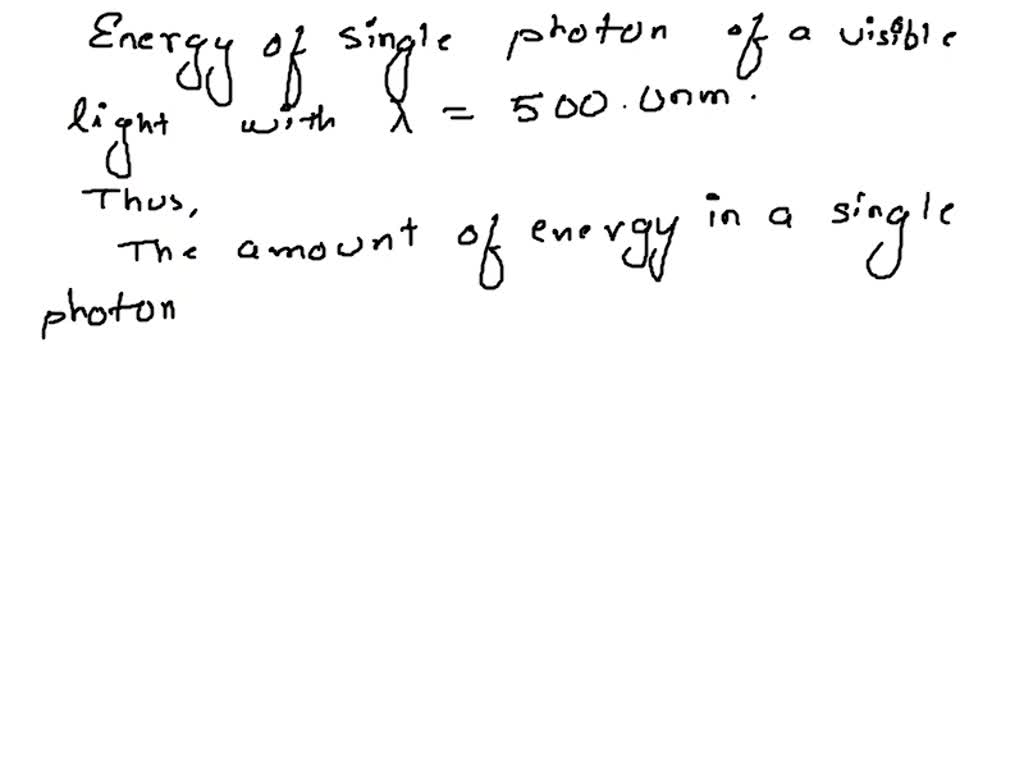 Energy of single photon of a visible
light with λ = 500.0nm.
Thus,
The amount of energy in a single
photon